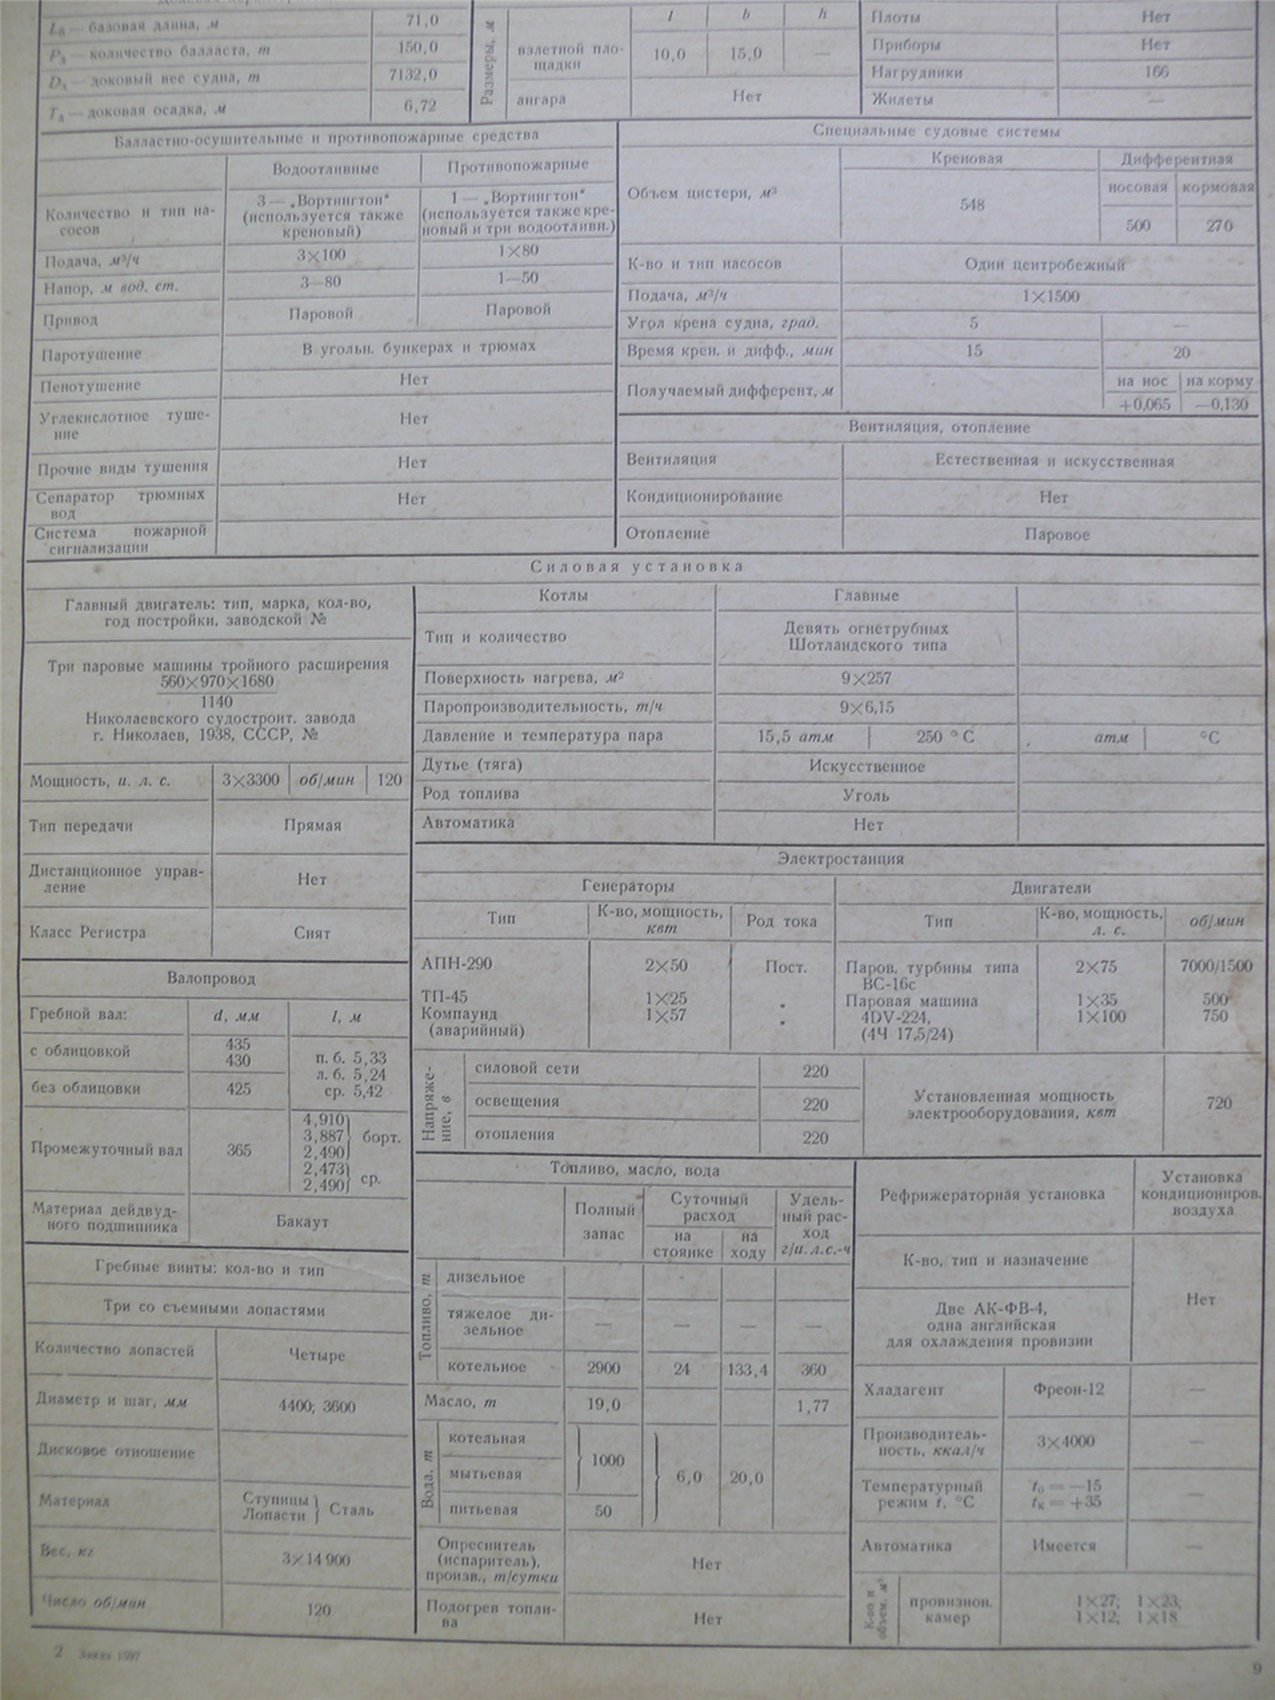 L — базовая длина, м 71,0
P — количество балласта, т 150,0
D — доковый вес судна, т 7132,0
T — доковая осадка, м 6,72
Размеры, м
l b h
взлетной пло-
щадки
10,0 15,0 —
ангара Нет
Плоты Нет
Приборы Нет
Нагрудники 166
Жилеты —
Балластно-осушительные и противопожарные средства
Водоотливные Противопожарные
Количество и тип на-
сосов
3 — „Вортингтон"
(используется также
креновый)
1 — „Вортингтон"
(используется также кре-
новый и три водоотливн.)
Подача, м³/ч 3×100 1×80
Напор, м вод. ст. 3—80 1—50
Привод Паровой Паровой
Паротушение В угольн. бункерах и трюмах
Пенотушение Нет
Углекислотное туше-
ние
Нет
Прочие виды тушения Нет
Сепаратор трюмных
вод
Нет
Система пожарной
сигнализации
Специальные судовые системы
Креновая Дифферентная
Объем цистерн, м³
носовая кормовая
548 500 270
К-во и тип насосов Один центробежный
Подача, м³/ч 1×1500
Угол крена судна, град. 5 —
Время крен. и дифф., мин 15 20
Получаемый дифферент, м
на нос на корму
+0,065 —0,130
Вентиляция, отопление
Вентиляция Естественная и искусственная
Кондиционирование Нет
Отопление Паровое
Силовая установка
Главный двигатель: тип, марка, кол-во,
год постройки, заводской №
Три паровые машины тройного расширения
560×970×1680
1140
Николаевского судостроит. завода
г. Николаев, 1938, СССР, №
Мощность, и. л. с. 3×3300 об/мин 120
Тип передачи Прямая
Дистанционное управ-
ление
Нет
Класс Регистра Снят
Валопровод
Гребной вал: d, мм l, м
с облицовкой 435
430
без облицовки 425
п. б. 5,33
л. б. 5,24
ср. 5,42
Промежуточный вал 365
4,910
3,887 борт.
2,490
2,473
2,490 ср.
Материал дейдвуд-
ного подшипника
Бакаут
Гребные винты: кол-во и тип
Три со съемными лопастями
Количество лопастей Четыре
Диаметр и шаг, мм 4400; 3600
Дисковое отношение
Материал
Ступицы
Лопасти
Сталь
Вес, кг 3×14 900
Число об/мин 120
Котлы Главные
Тип и количество
Девять огнетрубных
Шотландского типа
Поверхность нагрева, м² 9×257
Паропроизводительность, т/ч 9×6,15
Давление и температура пара 15,5 атм 250 °С атм °С
Дутье (тяга) Искусственное
Род топлива Уголь
Автоматика Нет
Электростанция
Генераторы Двигатели
Тип
К-во, мощность,
квт
Род тока
Тип
К-во, мощность,
л. с.
об/мин
АПН-290 2×50 Пост. Паров. турбины типа
ВС-16с
2×75 7000/1500
ТП-45 1×25 „ Паровая машина 1×35 500
Компаунд
(аварийный)
1×57 „ 4DV-224,
(4Ч 17,5/24)
1×100 750
Напряже-
ние, в
силовой сети 220
освещения 220
отопления 220
Установленная мощность
электрооборудования, квт
720
Топливо, масло, вода
Полный
запас
Суточный
расход
на
стоянке
на
ходу
Удель-
ный рас-
ход
г/и.л.с.-ч
Топливо, т
дизельное
тяжелое ди-
зельное
— — — —
котельное 2900 24 133,4 360
Масло, т 19,0 1,77
Вода, т
котельная
мытьевая
1000
питьевая 50
6,0 20,0
Опреснитель
(испаритель),
произв., т/сутки
Нет
Подогрев топли-
ва
Нет
Рефрижераторная установка
Установка
кондициониров.
воздуха
К-во, тип и назначение
Две АК-ФВ-4,
одна английская
для охлаждения провизии
Нет
Хладагент Фреон-12 —
Производитель-
ность, ккал/ч
3×4000 —
Температурный
режим t, °С
t₀ = —15
tк = +35
—
Автоматика Имеется —
К-во и
объем, м³
провизион.
камер
1×27; 1×23,
1×12, 1×18
2 Заказ
9